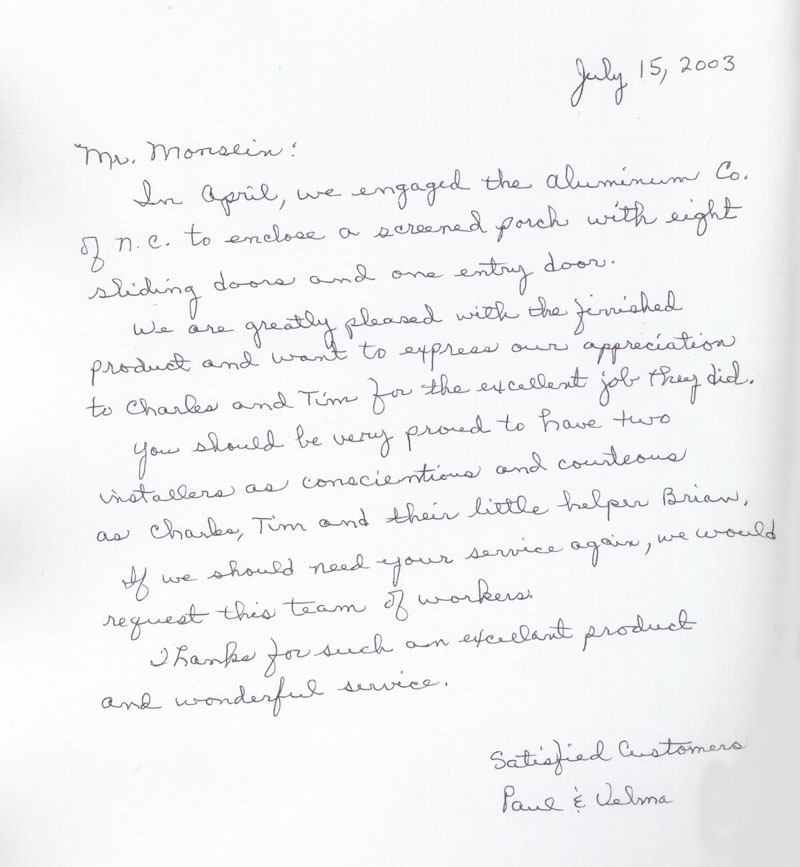 July 15, 2003
Mr. Monsein:
In April, we engaged the Aluminum Co.
of N.C. to enclose a screened porch with eight
sliding doors and one entry door.
We are greatly pleased with the finished
product and want to express our appreciation
to Charles and Tim for the excellent job they did.
You should be very proud to have two
installers as conscientious and courteous
as Charles, Tim and their little helper Brian.
If we should need your service again, we would
request this team of workers.
Thanks for such an excellant product
and wonderful service.
Satisfied Customers
Paul & Velma